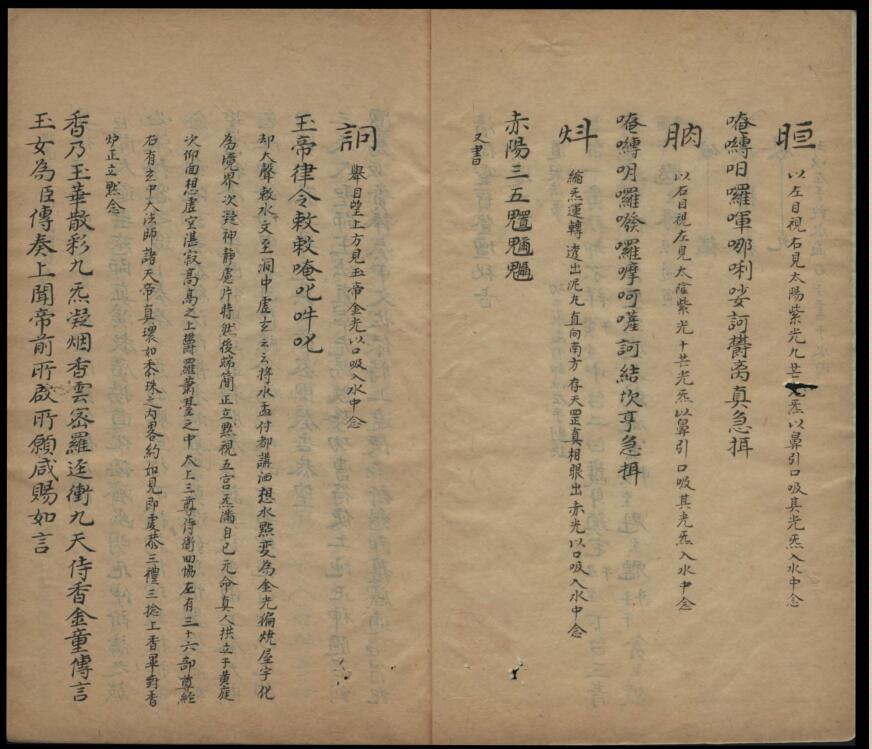 晅 以左目視右見太陽紫光九芒炁以鼻引口吸其光炁入水中念
唵嚩咱囉嗶哪唎娑訶欝离真急揖
朒 以右目視左見太陰紫光十芒光炁以鼻引口吸其光炁入水中念
唵嚩明囉發囉摩呵嚾訶結坎亨急揖
炓 綸炁運轉遶出泥丸直向南方存天罡真相眼出赤光以口吸入水中念
赤陽三五
又書
詗 舉目望上方見玉帝金光以口吸入水中念
玉帝律令敕敕唵叱吽叱
却大聲敕水文至洞中虛玄云云將水盂付都講洒想水點変為金光徧燒屋宇化
為境界次凝神静慮片時然後端簡正立默視五宮炁滿自已元命真人拱立于黄庭
次仰面想虛空湛寂高高之上欝羅蕭臺之中太上三尊侍衛四協左有三十六部尊經
右有玄中大法師諸天帝真環如黍珠之内畧約如見即虔恭三禮三捻上香畢對香
炉正立默念
香乃玉華散彩九炁凝烟香雲密羅逕衝九天侍香金童傳言
玉女為臣傳奏上聞帝前所啟所願咸賜如言